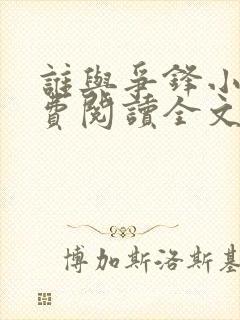 誰與爭鋒小
費閱讀全文
博加斯洛斯基